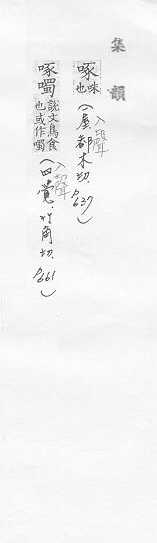 集韻
啄 味也 入聲 (屋都木切, P.637)
啄噣 說文鳥食也或作噣 入聲 (四覺, 竹角切, P.661)